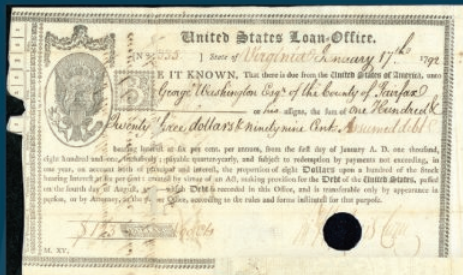 United States Loan-Office.
[No 535 ] State of Virginia January 17th 1792
BE IT KNOWN, That there is due from the United States of America, unto
George Washington Esqr. of the County of Fairfax
or his assigns, the sum of one Hundred &
Twenty three dollars & ninety nine Cents Assumed debt
bearing interest at six per cent. per annum, from the first day of January A. D. one thousand,
eight hundred and one, inclusively; payable quarter-yearly, and subject to redemption by payments not exceeding, in
one year, on account both of principal and interest, the proportion of eight Dollars upon a hundred of the stock
bearing Interest at six per cent created by virtue of an Act, making provision for the Debt of the United States, passed
on the fourth day of August, 1790 which Debt is recorded in this Office, and is transferable only by appearance in
person, or by Attorney, at the proper Office, according to the rules and forms instituted for that purpose.
$ 123
M. XV.